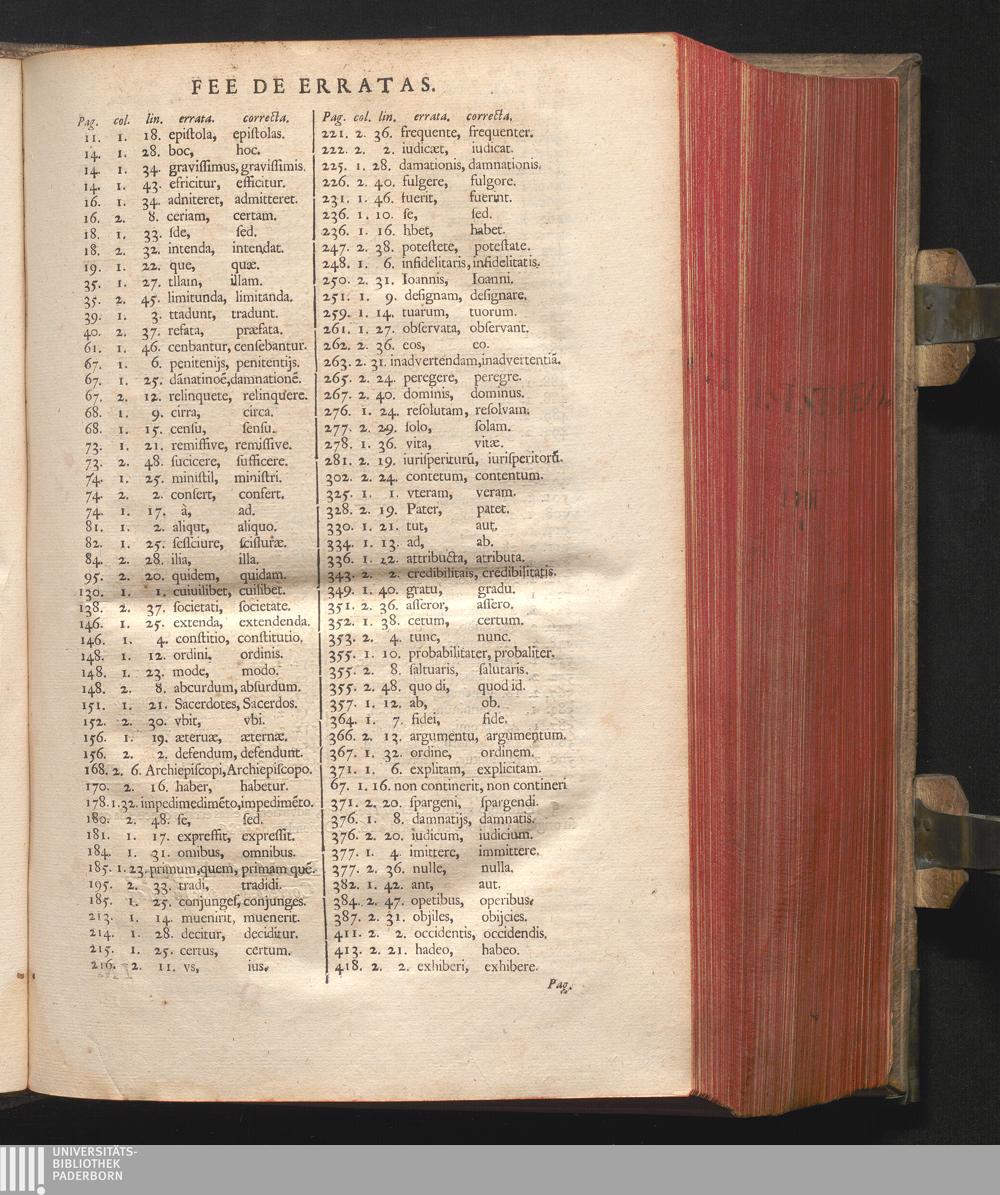 FEE DE ERRATAS.
Pag. col. lin. errata. correcta.
11. 1. 18. epiſtola, epiſtolas.
14. 1. 28. boc, hoc.
14. 1. 34. graviſſimus, graviſſimis.
14. 1. 43. efricitur, efficitur.
16. 1. 34. adniteret, admitteret.
16. 2. 8. ceriam, certam.
18. 1. 33. ſde, ſed.
18. 2. 32. intenda, intendat.
19. 1. 22. que, quæ.
35. 1. 27. tllam, illam.
35. 2. 45. limitunda, limitanda.
39. 1. 3. ttadunt, tradunt.
40. 2. 37. refata, præfata.
61. 1. 46. cenbantur, cenſebantur.
67. 1. 6. penitenijs, penitentijs.
67. 1. 25. dãnatinoẽ, damnationẽ.
67. 2. 12. relinquete, relinquere.
68. 1. 9. cirra, circa.
68. 1. 15. cenſu, ſenſu.
73. 1. 21. remiſſive, remiſſive.
73. 2. 48. ſucicere, ſufficere.
74. 1. 25. miniſtil, miniſtri.
74. 2. 2. conſert, confert.
74. 1. 17. à, ad.
81. 1. 2. aliqut, aliquo.
82. 1. 25. ſeſſciure, ſciſſuræ.
84. 2. 28. ilia, illa.
95. 2. 20. quidem, quidam.
130. 1. 1. cuiuilibet, cuilibet.
138. 2. 37. ſocietati, ſocietate.
146. 1. 25. extenda, extendenda.
146. 1. 4. conſtitio, conſtitutio.
148. 1. 12. ordini, ordinis.
148. 1. 23. mode, modo.
148. 2. 8. abcurdum, abſurdum.
151. 1. 21. Sacerdotes, Sacerdos.
152. 2. 30. vbit, vbi.
156. 1. 19. æteruæ, æternæ.
156. 2. 2. defendum, defendunt.
168. 2. 6. Archiepiſcopi, Archiepiſcopo.
170. 2. 16. haber, habetur.
178. 1. 32. impedimedimẽto, impedimẽto.
180. 2. 48. ſe, ſed.
181. 1. 17. expreſſit, expreſſit.
184. 1. 31. omibus, omnibus.
185. 1. 23. primum, quem, primam quẽ.
195. 2. 33. tradi, tradidi.
185. 1. 25. conjungeſ, conjunges.
213. 1. 14. muenirit, muenerit.
214. 1. 28. decitur, deciditur.
215. 1. 25. certus, certum.
216. 2. 11. vs, ius.
Pag. col. lin. errata. correcta.
221. 2. 36. frequente, frequenter.
222. 2. 2. iudicæt, iudicat.
225. 1. 28. damationis, damnationis.
226. 2. 40. fulgere, fulgore.
231. 1. 46. fuerit, fuerint.
236. 1. 10. ſe, ſed.
236. 1. 16. hbet, habet.
247. 2. 38. poteſtete, poteſtate.
248. 1. 6. infidelitaris, infidelitatis.
250. 2. 31. Ioannis, Ioanni.
251. 1. 9. deſignam, deſignare.
259. 1. 14. tuarum, tuorum.
261. 1. 27. obſervata, obſervant.
262. 2. 36. eos, eo.
263. 2. 31. inadvertendam, inadvertentiã.
265. 2. 24. peregere, peregre.
267. 2. 40. dominis, dominus.
276. 1. 24. reſolutam, reſolvam.
277. 2. 29. ſolo, ſolam.
278. 1. 36. vita, vitæ.
281. 2. 19. iuriſperiturũ, iuriſperitorũ.
302. 2. 24. contetum, contentum.
325. 1. 1. vteram, veram.
328. 2. 19. Pater, patet.
330. 1. 21. tut, aut.
334. 1. 13. ad, ab.
336. 1. 22. attribucta, atributa.
343. 2. 2. credibilitais, credibilitatis.
349. 1. 40. gratu, gradu.
351. 2. 36. aſſeror, aſſero.
352. 1. 38. cetum, certum.
353. 2. 4. tunc, nunc.
355. 1. 10. probabilitater, probaliter.
355. 2. 8. ſaltuaris, ſalutaris.
355. 2. 48. quo di, quod id.
357. 1. 12. ab, ob.
364. 1. 7. fidei, fide.
366. 2. 13. argumentu, argumentum.
367. 1. 32. ordine, ordinem.
371. 1. 6. explitam, explicitam.
67. 1. 16. non continerit, non contineri
371. 2. 20. ſpargeni, ſpargendi.
376. 1. 8. damnatijs, damnatis.
376. 2. 20. iudicum, iudicium.
377. 1. 4. imittere, immittere.
377. 2. 36. nulle, nulla.
382. 1. 42. ant, aut.
384. 2. 47. opetibus, operibus.
387. 2. 31. objiles, obijcies.
411. 2. 2. occidentis, occidendis.
413. 2. 21. hadeo, habeo.
418. 2. 2. exhiberi, exhibere.
Pag.
UNIVERSITÄTS-
BIBLIOTHEK
PADERBORN